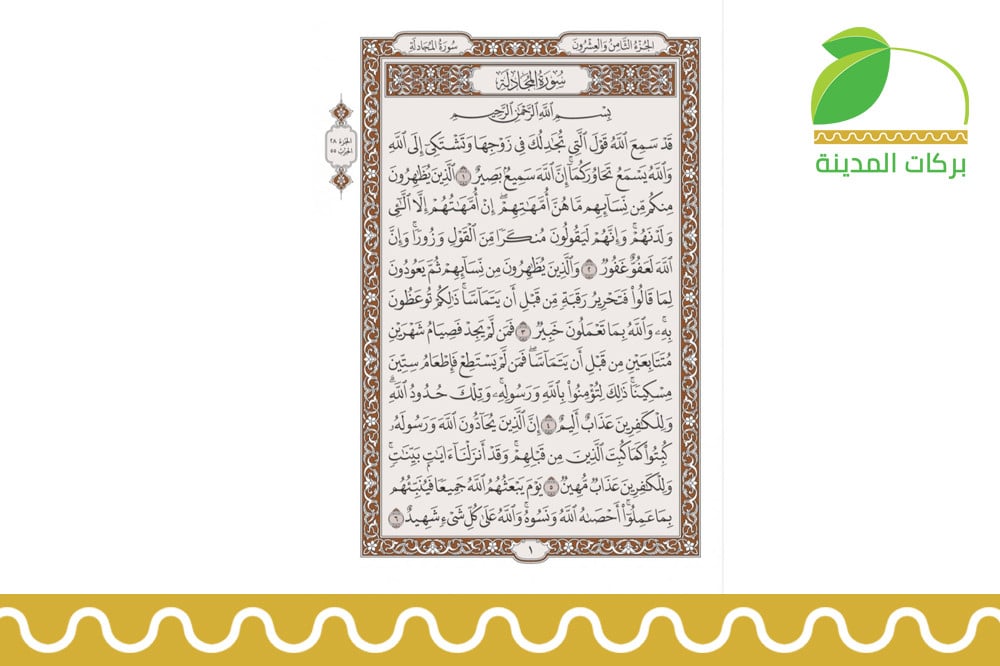 سُورَةُ المُجَادلَةِ
الجُزءُ الثَّامِنُ وَالعِشْرُونَ
سُورَةُ المُجَادلَةِ
بِسْمِ اللَّهِ الرَّحْمَٰنِ الرَّحِيمِ
الجزء ٢٨
الحزب ٥٥
قَدْ سَمِعَ اللَّهُ قَوْلَ الَّتِي تُجَٰدِلُكَ فِي زَوْجِهَا وَتَشْتَكِي إِلَى اللَّهِ
وَاللَّهُ يَسْمَعُ تَحَاوُرَكُمَا إِنَّ اللَّهَ سَمِيعٌ بَصِيرٌ ١ الَّذِينَ يُظَٰهِرُونَ
مِنكُم مِّن نِّسَآئِهِم مَّا هُنَّ أُمَّهَٰتِهِمْ إِنْ أُمَّهَٰتُهُمْ إِلَّا الَّٰٓئِي
وَلَدْنَهُمْ وَإِنَّهُمْ لَيَقُولُونَ مُنكَرًا مِّنَ الْقَوْلِ وَزُورًا وَإِنَّ
اللَّهَ لَعَفُوٌّ غَفُورٌ ٢ وَالَّذِينَ يُظَٰهِرُونَ مِن نِّسَآئِهِمْ ثُمَّ يَعُودُونَ
لِمَا قَالُوا فَتَحْرِيرُ رَقَبَةٍ مِّن قَبْلِ أَن يَتَمَآسَّا ذَٰلِكُمْ تُوعَظُونَ
بِهِۦ وَاللَّهُ بِمَا تَعْمَلُونَ خَبِيرٌ ٣ فَمَن لَّمْ يَجِدْ فَصِيَامُ شَهْرَيْنِ
مُتَتَابِعَيْنِ مِن قَبْلِ أَن يَتَمَآسَّا فَمَن لَّمْ يَسْتَطِعْ فَإِطْعَامُ سِتِّينَ
مِسْكِينًا ذَٰلِكَ لِتُؤْمِنُوا بِاللَّهِ وَرَسُولِهِۦ وَتِلْكَ حُدُودُ اللَّهِ
وَلِلْكَٰفِرِينَ عَذَابٌ أَلِيمٌ ٤ إِنَّ الَّذِينَ يُحَآدُّونَ اللَّهَ وَرَسُولَهُۥ
كُبِتُوا كَمَا كُبِتَ الَّذِينَ مِن قَبْلِهِمْ وَقَدْ أَنزَلْنَآ ءَايَٰتٍ بَيِّنَٰتٍ
وَلِلْكَٰفِرِينَ عَذَابٌ مُّهِينٌ ٥ يَوْمَ يَبْعَثُهُمُ اللَّهُ جَمِيعًا فَيُنَبِّئُهُم
بِمَا عَمِلُوٓا أَحْصَىٰهُ اللَّهُ وَنَسُوهُ وَاللَّهُ عَلَىٰ كُلِّ شَيْءٍ شَهِيدٌ ٦
١
بركات المدينة